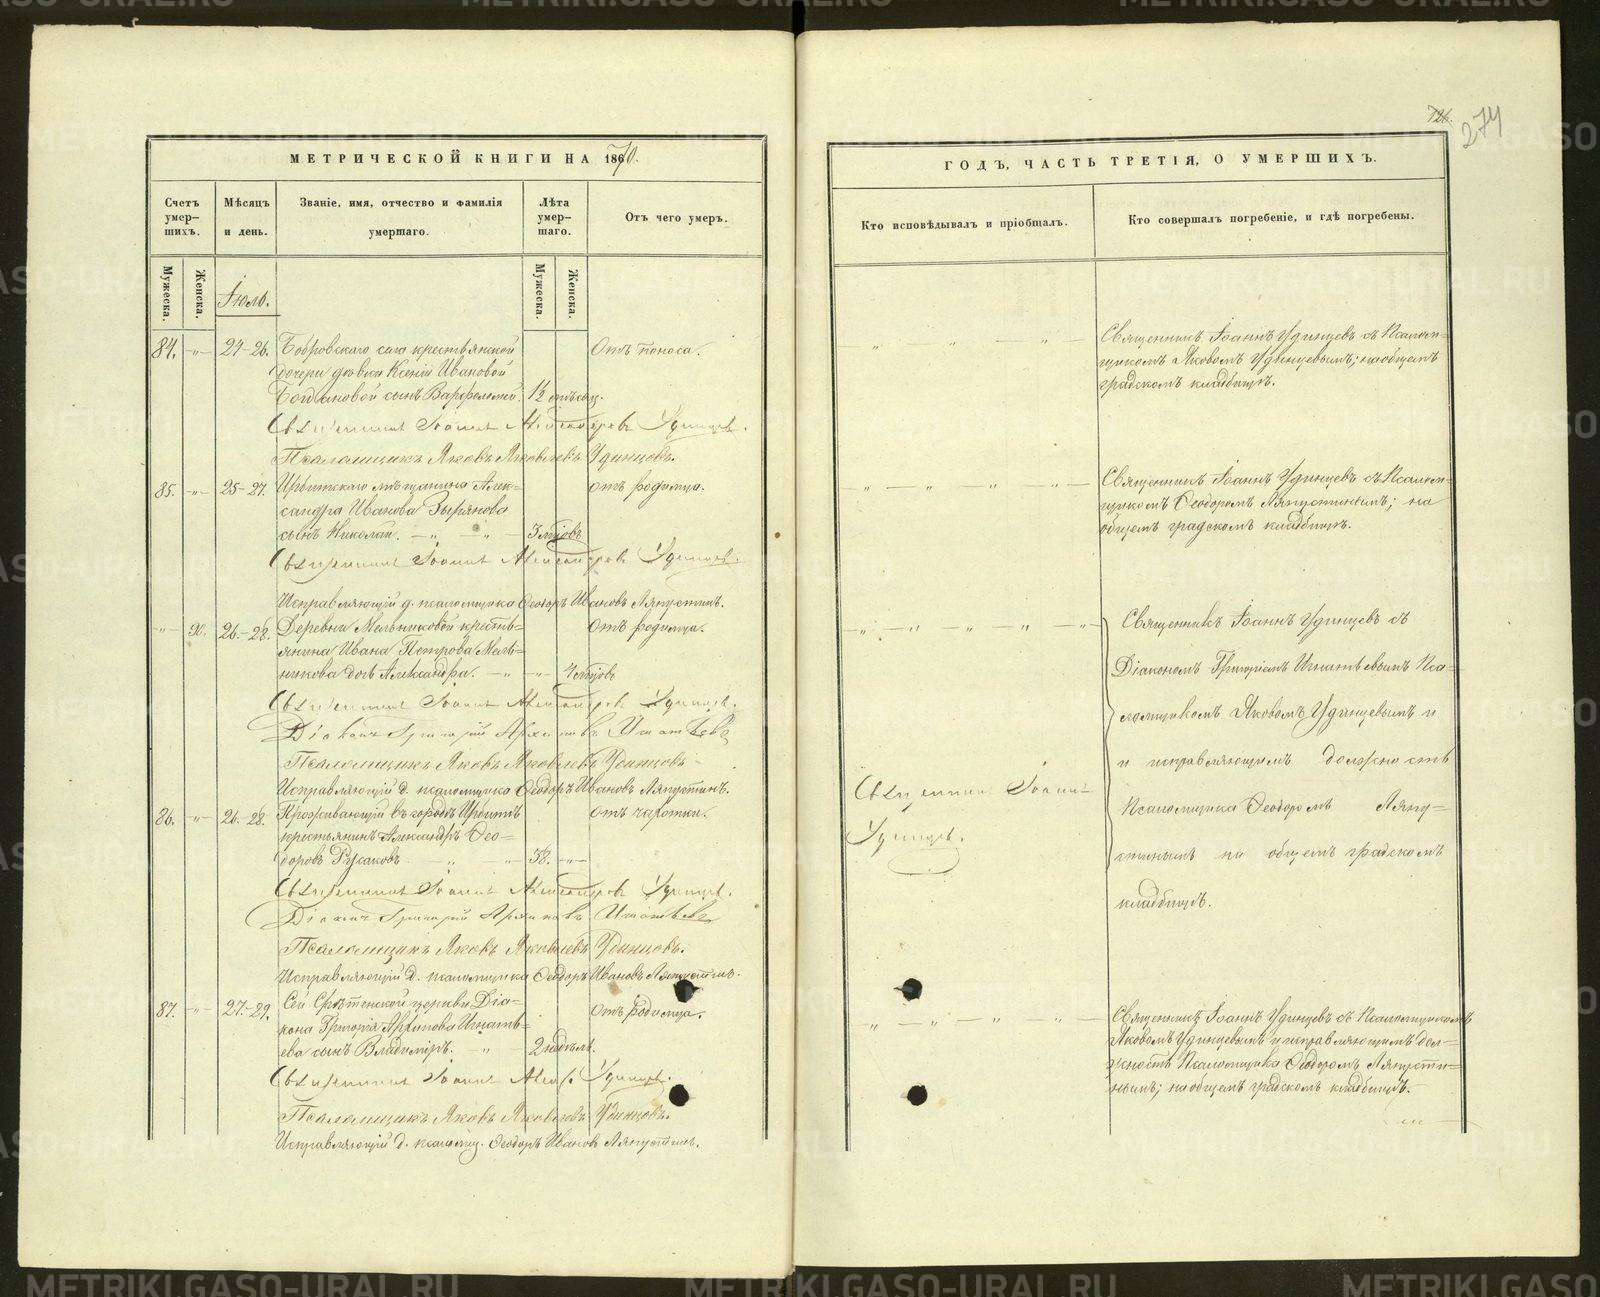 МЕТРИЧЕСКОЙ КНИГИ НА 1870.
Счетъ умер-шихъ.
Мѣсяцъ и день.
Званіе, имя, отчество и фамилія умершаго.
Лѣта умер-шаго.
Отъ чего умеръ.
Мужеска.
Женска.
Мужеска.
Женска.
Іюль.
84. -„- 24-26. Бобровскаго села крестьянской Отъ поноса.
дочери дѣвки Ксеніи Ивановой
Богдановой сынъ Варѳоломей. 1½ мѣсяц.
Священникъ Іоаннъ Александровъ Удинцевъ.
Псаломщикъ Яковъ Яковлевъ Удинцовъ.
85. -„- 25-27. Ирбитскаго мѣщанина Алек- отъ родимца.
сандра Иванова Зырянова
сынъ Николай. -„- -„- 3 мѣсяцовъ
Священникъ Іоаннъ Александровъ Удинцевъ.
Исправляющій д. псаломщика Ѳеодоръ Ивановъ Ляпустинъ.
-„- 90. 26-28. Деревни Мельниковой кресть- Отъ родимца.
янина Ивана Петрова Мель-
никова дочь Александра. -„- -„- 4 мѣсяцовъ
Священникъ Іоаннъ Александровъ Удинцевъ.
Діаконъ Григорій Архиповъ Игнатьевъ
Псаломщикъ Яковъ Яковлевъ Удинцовъ.
Исправляющій д. псаломщика Ѳеодоръ Ивановъ Ляпустинъ.
86. -„- 26-28. Проживающій въ городѣ Ирбити отъ чахотки.
крестьянинъ Александръ Ѳео-
доровъ Русаковъ -„- -„- 38. -„-
Священникъ Іоаннъ Александровъ Удинцевъ.
Діаконъ Григорій Архиповъ Игнатьевъ
Псаломщикъ Яковъ Яковлевъ Удинцовъ.
Исправляющій д. псаломщика Ѳеодоръ Ивановъ Ляпустинъ.
87. -„- 27-29. Сей Срѣтенской церкви Діа- Отъ родимца.
кона Григорія Архипова Игнать-
ева сынъ Владиміръ. -„- 2 недѣль.
Священникъ Іоаннъ Алекс. Удинцевъ.
Псаломщикъ Яковъ Яковлевъ Удинцовъ.
Исправляющій д. псаломщ. Ѳеодоръ Ивановъ Ляпустинъ.
726.
274
ГОДЪ, ЧАСТЬ ТРЕТІЯ, О УМЕРШИХЪ.
Кто исповѣдывалъ и пріобщалъ.
Кто совершалъ погребеніе, и гдѣ погребены.
Священникъ Іоаннъ Удинцевъ съ Псалом-
щикомъ Яковомъ Удинцевымъ; на общемъ
градскомъ кладбищѣ.
Священникъ Іоаннъ Удинцевъ съ Псалом-
щикомъ Ѳеодоромъ Ляпустинымъ; на
общемъ градскомъ кладбищѣ.
Священникъ Іоаннъ Удинцевъ съ
Діакономъ Григоріемъ Игнатьевымъ Пса-
ломщикомъ Яковомъ Удинцевымъ и
и исправляющимъ должность
Псаломщика Ѳеодоромъ Ляпу-
стинымъ на общемъ градскомъ
кладбищѣ.
Священникъ Іоаннъ
Удинцевъ.
Священникъ Іоаннъ Удинцевъ съ Псаломщикомъ
Яковомъ Удинцевымъ и исправляющимъ дол-
жность Псаломщика Ѳеодоромъ Ляпусти-
нымъ; на общемъ градскомъ кладбищѣ.
METRIKI.GASO-URAL.RU